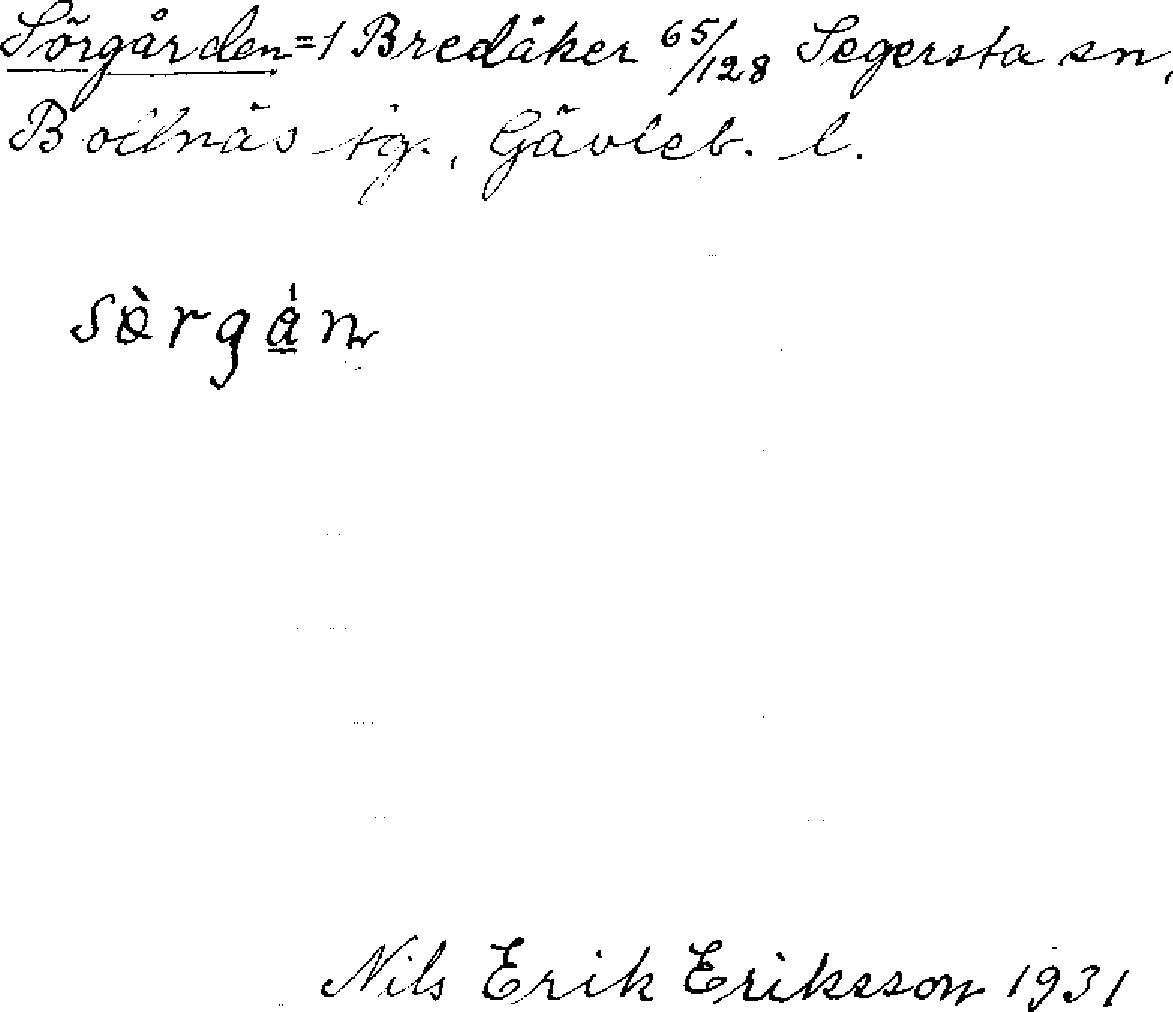 Sörgården=1 Bredåker 65/128 Segersta sn,
Bollnäs tg., Gävleb. l.
sèrgán
Nils Erik Eriksson 1931